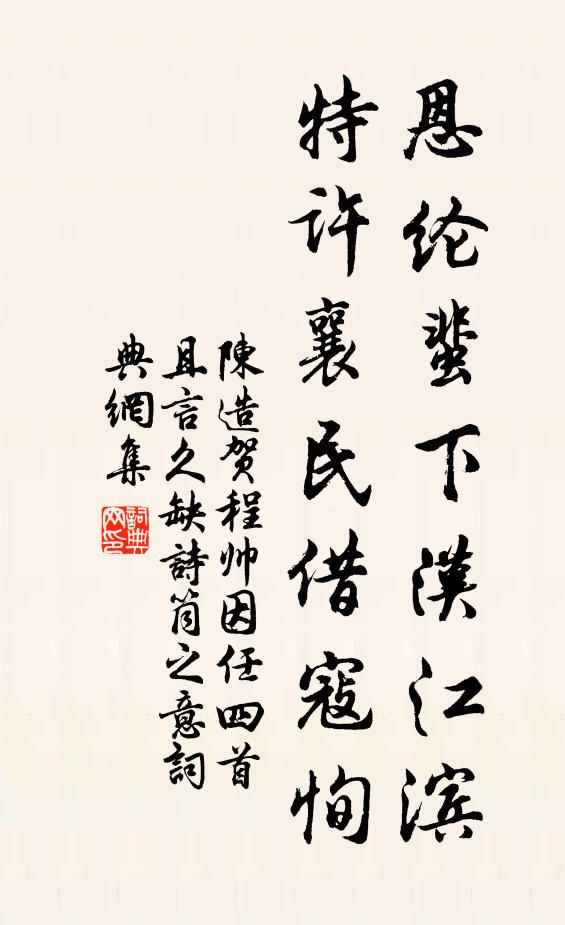 恩纶蜚下漢江滨
特许襄民借寇恂
陳造贺程帅因任四首
且言久缺詩筒之意詞
典網集
詞典网印